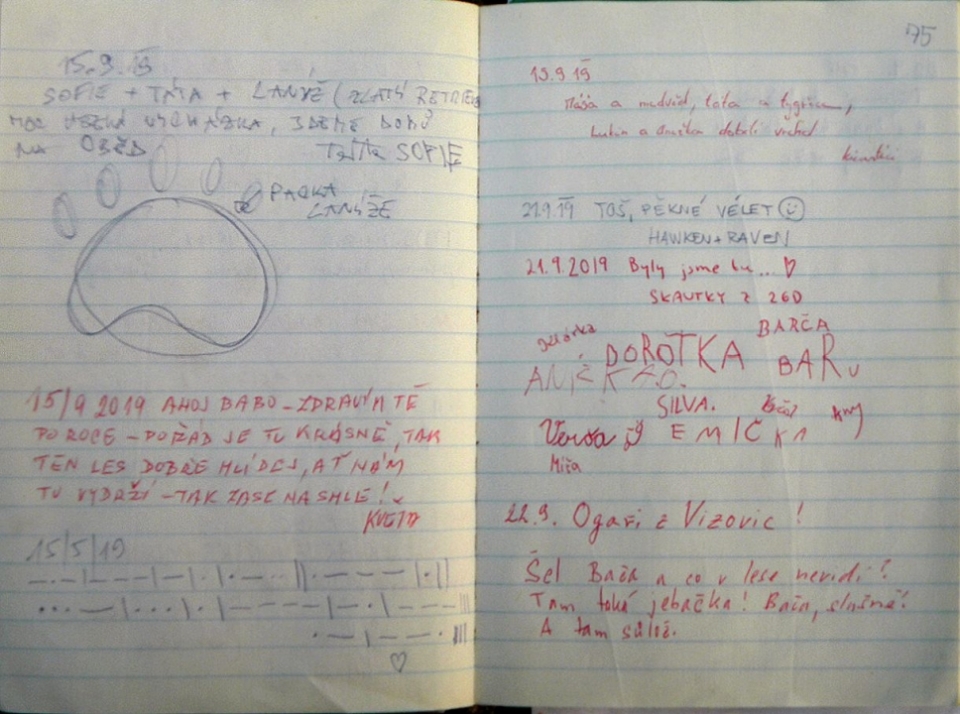 15.9.19
SOFIE + TÁTA + LANÝŽ (ZLATÝ RETRIEVR
MOC HEZKÁ VYCHÁZKA, JDEME DOMŮ
NA OBĚD TÁTA SOFIE
PACKA
LANÝŽE
15/9 2019 AHOJ BABO – ZDRAVÍM TĚ
PO ROCE – POŘÁD JE TU KRÁSNĚ, TAK
TEN LES DOBŘE HLÍDEJ, AŤ NÁM
TU VYDRŽÍ – TAK ZASE NASHLE!
KVĚTA
15/5/19
75
15.9 19
Máša a medvěd, táta a tygřice,
vrchol
21.9.19 TOŠ, PĚKNÉ VÉLET ☺
HAWKEN + RAVEN
21.9.2019 Byly jsme tu... ♡
SKAUTKY Z 260
BARČA
DOROTKA BARU
ANIČKA
SILVA.
Verča EMIČKA Any
Míša
22.9. Ogaři z Vizovic!
Šel Bača a co v lese nevidí?
Tam taká jebačka! Bača, slušně!
A tam súlož.